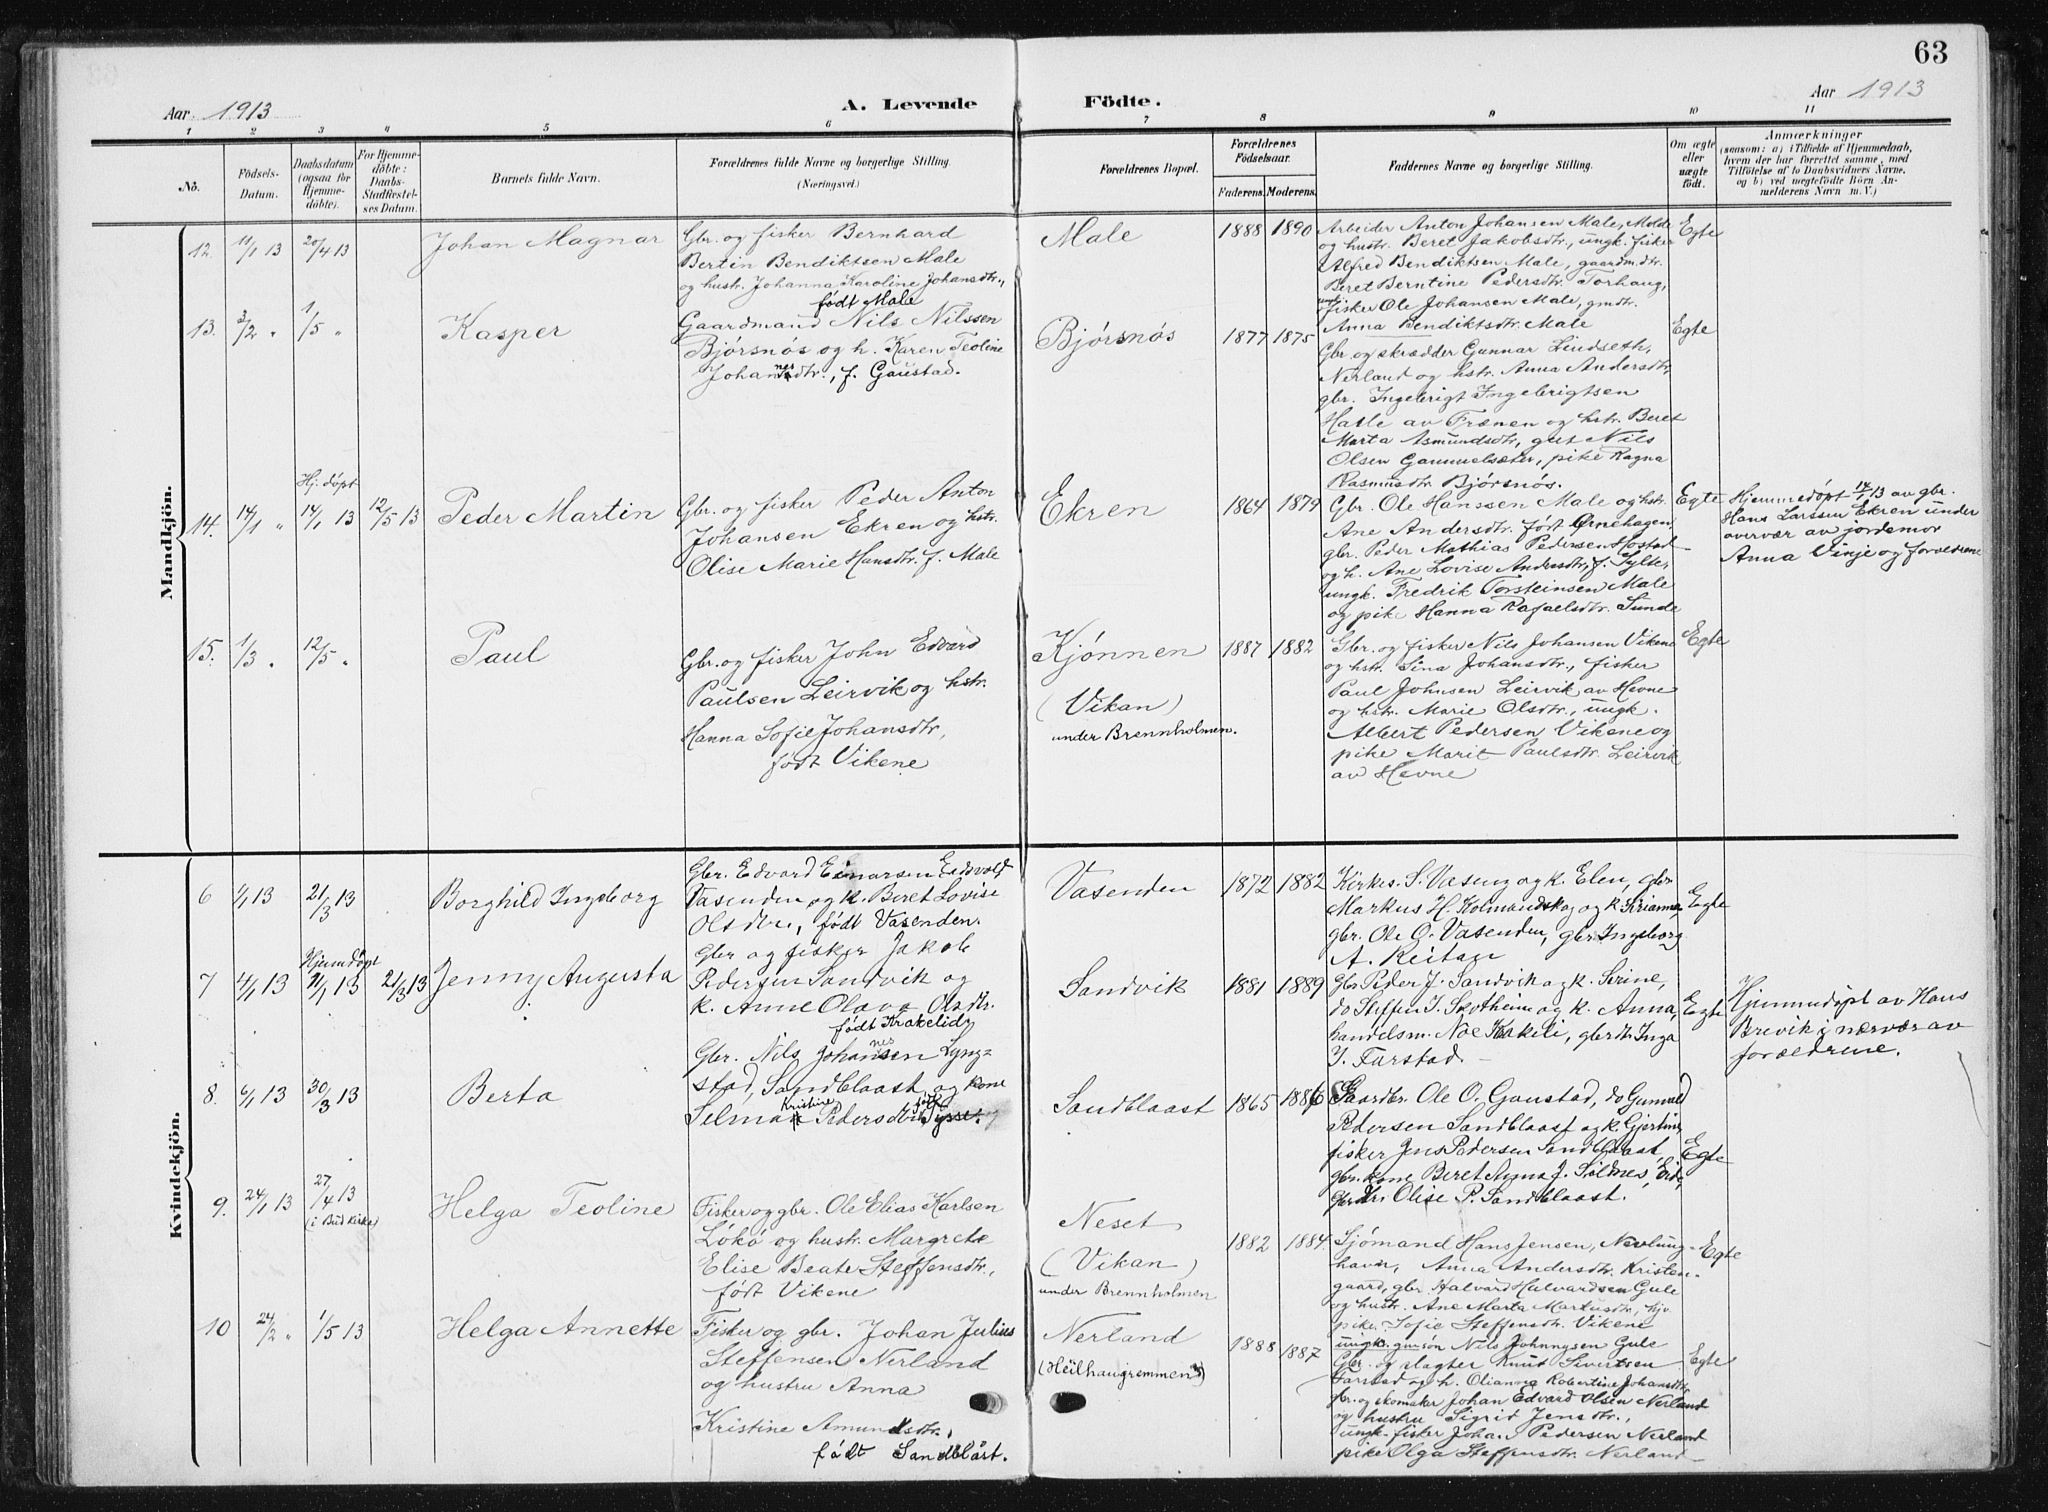 63
Aar 1913
A. Levende
Födte.
Aar 1913
1 2 3 4 5 6 7 8 9 10 11
No.
Födsels-
Datum.
Daabsdatum
(ogsaa for
Hjemme-
döbte).
For Hjemme-
döbte:
Daabs-
Stadfæstel-
ses Datum.
Barnets fulde Navn.
Forældrenes fulde Navne og borgerlige Stilling.
(Næringsvei.)
Forældrenes Bopæl.
Forældrenes
Födselsaar.
Faderens. Moderens.
Faddernes Navne og borgerlige Stilling.
Om ægte
eller
uægte
födt.
Anmærkninger
(saasom: a) i Tilfælde af Hjemmedaab,
hvem der har forrettet samme, med
Tilföielse af to Daabsvidners Navne,
og b) ved uægtefödte Börn An-
melderens Navn m. V.)
Mandkjön.
12. 11/1 13 20/4 13
Johan Magnar
Gbr. og fisker Bernhard
Bertin Bendiktsen Male
og hustr. Johanna Karoline Johansdtr.,
født Male
Male
1888 1890
Arbeider Anton Johansen Male, Molde
og hustr. Beret Jakobsdtr., ungk. fisker
Alfred Bendiktsen Male, gaardm.dtr.
Beret Berntine Pedersdtr. Torhaug,
ungk. fisker Ole Johansen Male, gmdtr.
Anna Bendiktsdtr. Male
Egte
13. 3/2 " 1/5 "
Kasper
Gaardmand Nils Nilssen
Bjørsnøs og h. Karen Teoline
Johannesdtr., f. Gaustad.
Bjørsnøs
1877 1875
Gbr. og skrædder Gunnar Lindseth,
Nerland og hstr. Anna Andersdtr,
gbr. Ingebrigt Ingebrigtsen
Hatle av Frænen og hstr. Beret
Marta Asmundsdtr, gut Nils
Olsen Gammelsæter, pike Ragna
Rasmusdtr Bjørsnøs.
Egte
14. 14/1 " Hj. døpt 14/1 13 12/5 13
Peder Martin
Gbr. og fisker Peder Anton
Johansen Ekren og hstr.
Olise Marie Hansdtr. f. Male
Ekren
1864 1879
Gbr. Ole Hanssen Male og hstr.
Ane Andersdtr. født Ørnehagen,
gbr. Peder Mathias Pedersen Hostad
og h. Ane Lovise Andersdtr, f. Sylte,
ungk. Fredrik Torsteinsen Male
og pike Hanna Rafaelsdtr. Sunde
Egte
Hjemmedøpt 14/1 13 av gbr.
Hans Larssen Ekren under
overvær av jordemor
Anna Vinje og forældrene
15. 1/3 " 12/5 "
Paul
Gbr. og fisker John Edvard
Paulsen Leirvik og hstr.
Hanna Sofie Johansdtr,
født Vikene
Kjønnen
(Vikan)
under Brennholmen.
1887 1882
Gbr. og fisker Nils Johansen Vikene
og hstr. Sina Johansdtr., fisker
Paul Johnsen Leirvik av Hevne
og hstr. Marie Olsdtr., ungk.
Albert Pedersen Vikene og
pike Marit Paulsdtr. Leirvik
av Hevne
Egte
Kvindekjön.
6 1/1 13 21/3 13
Borghild Ingeborg
Gbr. Edvard Einarsen Eidsvolt
Vasenden og k. Beret Lovise
Olsdtr, født Vasenden.
Vasenden
1872 1882
Kirkes. S. Vaseng og k. Elen, gbr
Markus H. Kolmanskog og k Serianna,
gbr. Ole O. Vasenden, gbr Ingeborg
A. Reitan
Egte
7 4/1 13 Hjemdøpt 11/1 13 21/3 13
Jenny Augusta
Gbr og fisker Jakob
Pedersen Sandvik og
k. Anne Olava Olsdtr.
født Krakelid
Sandvik
1881 1889
Gbr Peder J. Sandvik og k. Serine,
do Steffen I. Skotheim og k. Anna,
handelsm. Noe Kakeli, gbr.dtr. Inga
I. Farstad.
Egte
Hjemmedøpt av Hans
Brevik i nærvær av
forældrene.
8. 6/1 13 30/3 13
Berta
Gbr. Nils Johannesen Lyng-
stad, Sandblaast og kone
Selma Kristine Pedersdtr født Sysse.
Sandblaast
1865 1886
Gaardbr. Ole O. Gaustad, do Gunvald
Pedersen Sandblaast og k. Gjertine,
fisker Jens Pedersen Sandblaast,
gbr. kone Beret Anna J. Solnes, Eide,
gbrdtr. Olise P. Sandblaast.
Egte
9. 24/1 13 27/4 13
(i Bud kirke)
Helga Teoline
Fisker og gbr. Ole Elias Karlsen
Løkø og hustr. Margrete
Elise Beate Steffensdtr.,
født Vikene
Neset
(Vikan)
under Brennholmen
1882 1884
Sjømand Hans Jensen, Nevlung-
havn, Anna Andersdtr. Kristen-
gaard, gbr. Halvard Halvardsen Gule
og hustr. Ane Marta Markusdtr., hjv.
pike Sofie Steffensdtr. Vikene
ungk. gmsøn Nils Johnnysen Gule
Egte
10 24/2 " 1/5 13
Helga Annette
Fisker og gbr. Johan Julius
Steffensen Nerland
og hustru Anna
Kristine Amundsdtr.,
født Sandblåst.
Nerland
(Heilhaugremmen)
1888 1887
Gbr. og slagter Knut Sivertsen
Farstad og h. Olianna Robertine Johansdtr.
gbr. og skomaker Johan Edvard Olsen Nerland
og hustru Sigrid Jensdtr.,
ungk. fisker Johan Pedersen Nerland
pike Olga Steffensdtr. Nerland
Egte